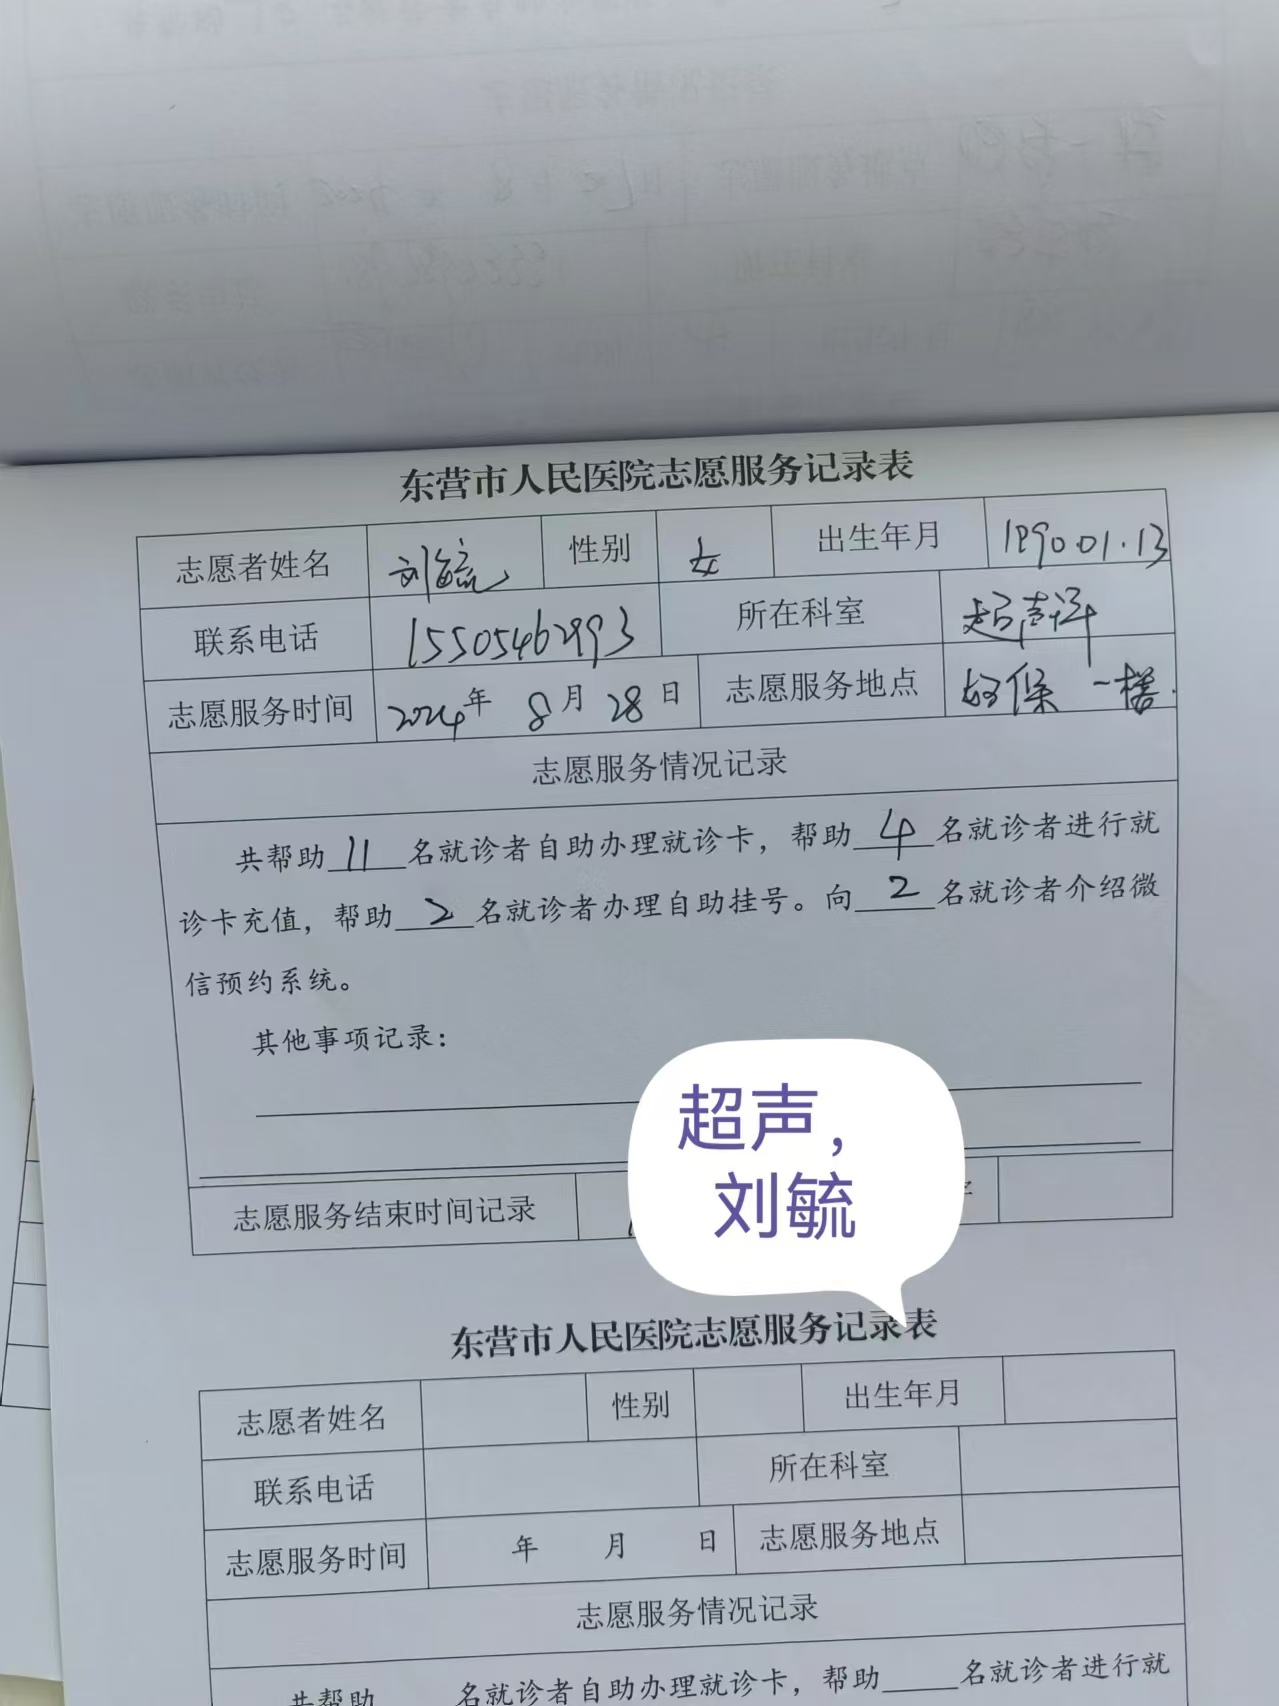 东营市人民医院志愿服务记录表
志愿者姓名 刘毓 性别 女 出生年月 1990.01.13
联系电话 15505462993 所在科室 超声科
志愿服务时间 2024年 8月 28日 志愿服务地点 妇保 一楼
志愿服务情况记录
共帮助 11 名就诊者自助办理就诊卡，帮助 4 名就诊者进行就
诊卡充值，帮助 2 名就诊者办理自助挂号。向 2 名就诊者介绍微
信预约系统。
其他事项记录：
超声，
刘毓
志愿服务结束时间记录
东营市人民医院志愿服务记录表
志愿者姓名 性别 出生年月
联系电话 所在科室
志愿服务时间 年 月 日 志愿服务地点
志愿服务情况记录
共帮助 名就诊者自助办理就诊卡，帮助 名就诊者进行就